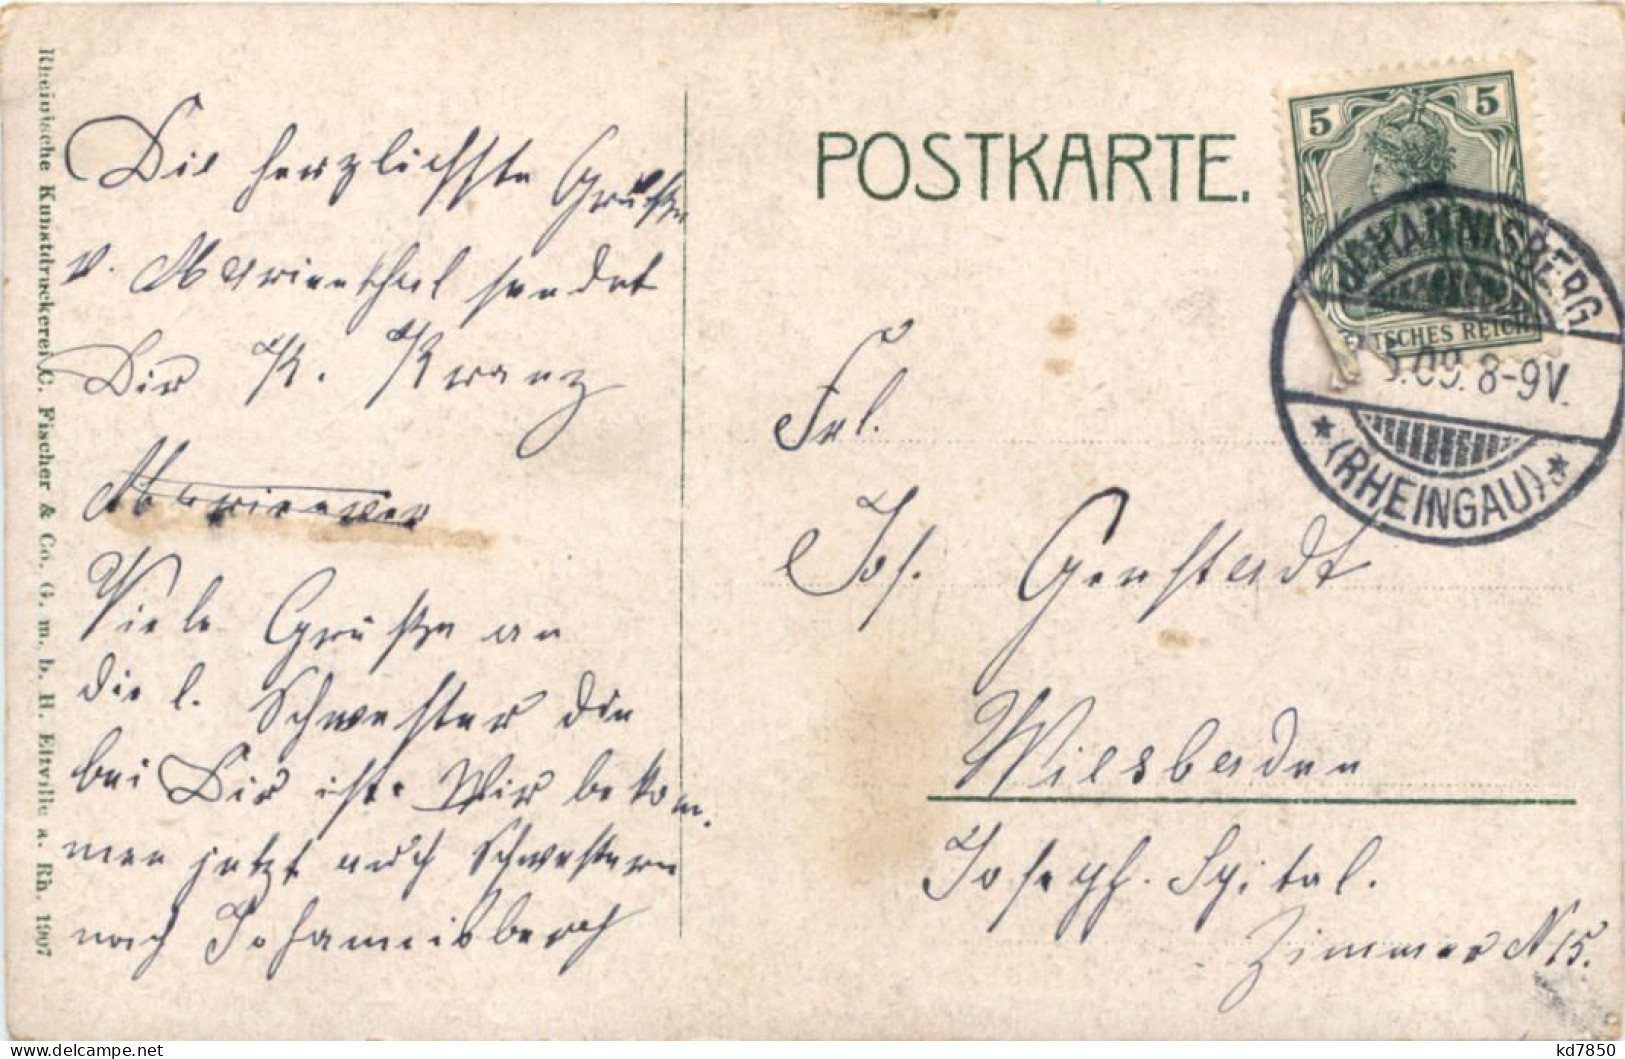 Rheinische Kunstdruckerei C. Fischer & Co. G. m. b. H. Eltville a. Rh. 1907
Die herzlichste Grüße
v. Marienthal sendet
Dir K. Kranz
Viele Grüße an
die l. Schwester die
bei Dir ist. Wir bekom-
men jetzt auch Schwestern
nach Johannisberg
POSTKARTE.
5 5
DEUTSCHES REICH
JOHANNISBERG
.09. 8-9V.
(RHEINGAU)
Frl.
Jos. Gerstadt
Wiesbaden
Joseph. Spital.
Zimmer N 15.
kd7850